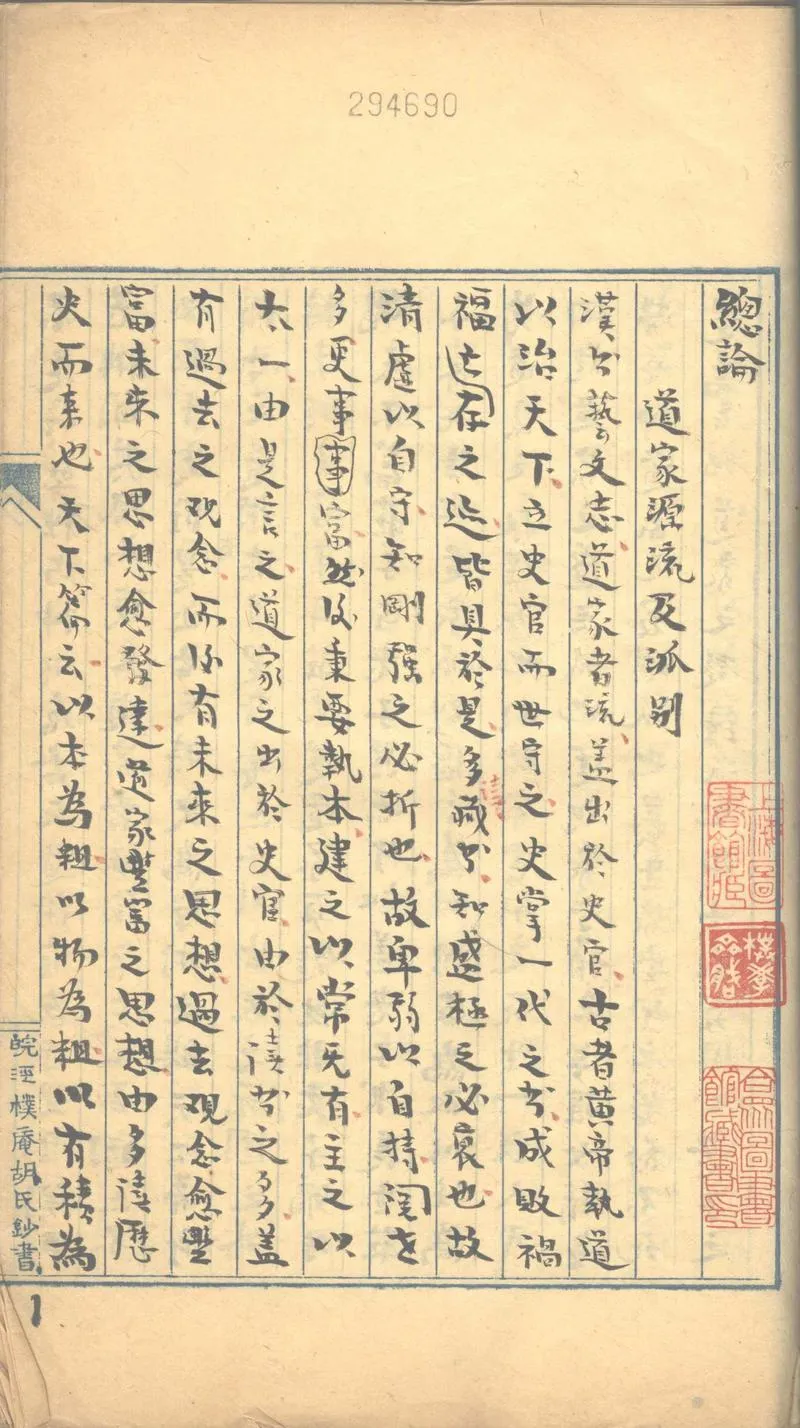 294690
總論
道家源流及派别
漢书藝文志道家者流蓋出於史官古者黄帝執道
以治天下立史官而世守之史掌一代之书成敗禍
福亡存之迹皆具於是多藏书知盛極之必衰也故
清虛以自守知剛强之必折也故卑弱以自持閲世
多更事事富然後秉要執本建之以常无有主之以
太一由是言之道家之出於史官由於讀书之多蓋
有過去之观念而後有未來之思想過去观念愈豐
富未來之思想愈發達道家豐富之思想由多讀歷
史而來也天下篇云以本為粗以物為粗以有積為
皖涇樸庵胡氏鈔書
1
上海圖書館藏
合众圖書館藏書印